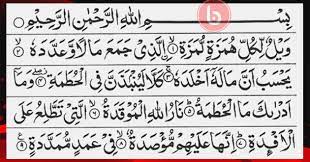 بِسْمِ اللهِ الرَّحْمٰنِ الرَّحِيْمِ
وَيْلٌ لِّكُلِّ هُمَزَةٍ لُّمَزَةِ ۙ﴿۱﴾ الَّذِيْ جَمَعَ مَالًا وَّعَدَّدَهٗ ۙ﴿۲﴾
يَحْسَبُ اَنَّ مَالَهٗٓ اَخْلَدَهٗ ۚ﴿۳﴾ كَلَّا لَيُنْۢبَذَنَّ فِي الْحُطَمَةِ ۖ﴿۴﴾ وَمَآ
اَدْرٰىكَ مَا الْحُطَمَةُ ؕ﴿۵﴾ نَارُ اللهِ الْمُوْقَدَةُ ۙ﴿۶﴾ الَّتِيْ تَطَّلِعُ عَلَى
الْاَفْـِٕدَةِ ؕ﴿۷﴾ اِنَّهَا عَلَيْهِمْ مُّؤْصَدَةٌ ۙ﴿۸﴾ فِيْ عَمَدٍ مُّمَدَّدَةٍ ﴿۹﴾